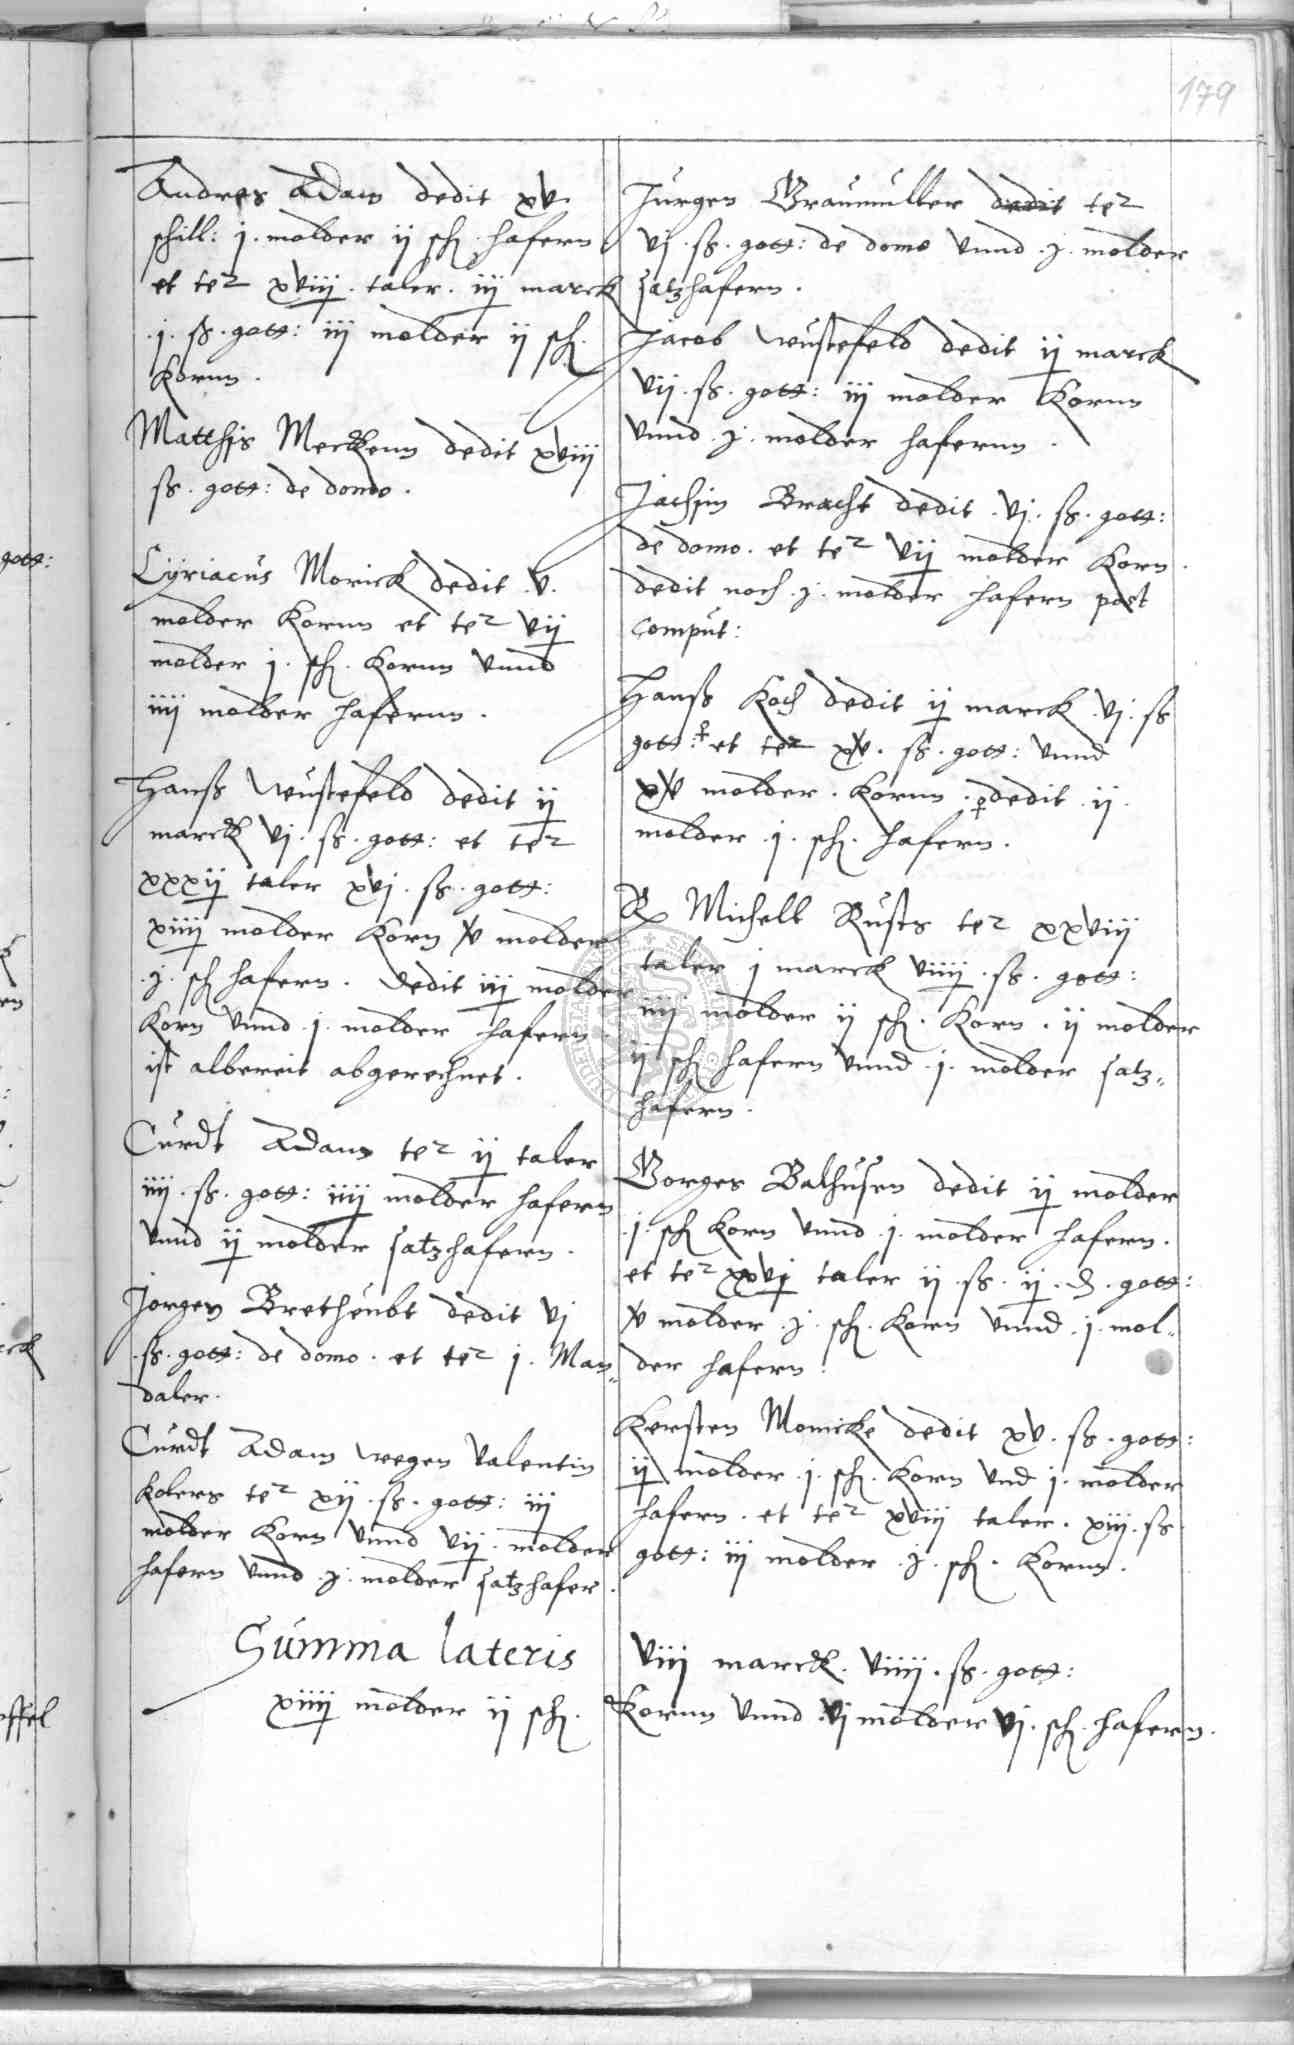 179
Andres Adam dedit xv.
schill: j. molder ij sch. hafern
et ter xviij. taler. iij marck
.j. ß. gott: iij molder ij sch.
Kornn.
Matthis Merckenn dedit xviij
ß. gott: de domo.
Cÿriacus Morick dedit .v.
molder Kornn et ter vij
molder j. sch. Kornn vnnd
iiij molder hafernn.
Hanß Wustefeld dedit ij
marck vj. ß. gott: et ter
xxxij taler xvj. ß. gott:
xiiij molder Korn v molder
.j. sch hafern. dedit iij molder
Korn vnnd .j. molder hafern
ist albereit abgerechnet.
Curdt Adam ter ij taler
iiij. ß. gott: iiij molder hafern
vnnd ij molder satzhafern.
Jorgen Brethenbt dedit vj
.ß. gott: de domo. et ter j. Man-
daler.
Curdt Adam wegen Valentin
Kolers ter xij. ß. gott: iij
molder Korn vnnd vij. molder
hafern vnnd .j. molder satzhafer.
Summa lateris
xiiij molder ij sch.
Jurgen Braumuller dedit ter
vj. ß. gott: de domo vnnd .j. molder
satzhafern.
Jacob Wustefeld dedit ij marck
vij. ß. gott: iij molder Kornn
vnnd .j. molder hafernn.
Jachim Bracht dedit .vj. ß. gott:
de domo. et ter vij molder Korn.
dedit noch .j. molder hafern post
comput:
Hanß Koch dedit ij marck .vj. ß
gott: et ter xv. ß. gott: vnnd
xv molder. Kornn. dedit .ij.
molder .j. sch. hafern.
Michell Rusts ter xxviij
taler j marck viiij. ß. gott:
iiij molder ij sch. Korn. ij molder
ij sch hafern vnnd .j. molder satz-
hafern.
Borges Balhusen dedit ij molder
.j. sch Korn vnnd .j. molder hafern.
et ter xxvj taler ij. ß. ij. d. gott:
v molder .j. sch. Korn vnnd .j. mol-
der hafern.
Kersten Momicke dedit xv. ß. gott:
ij molder .j. sch. Korn vnd j. molder
hafern. et ter xviij taler. xiij. ß.
gott: iij molder .j. sch. Kornn.
viij marck. viiij. ß. gott:
Kornn vnnd .vj molder vj. sch. hafern.